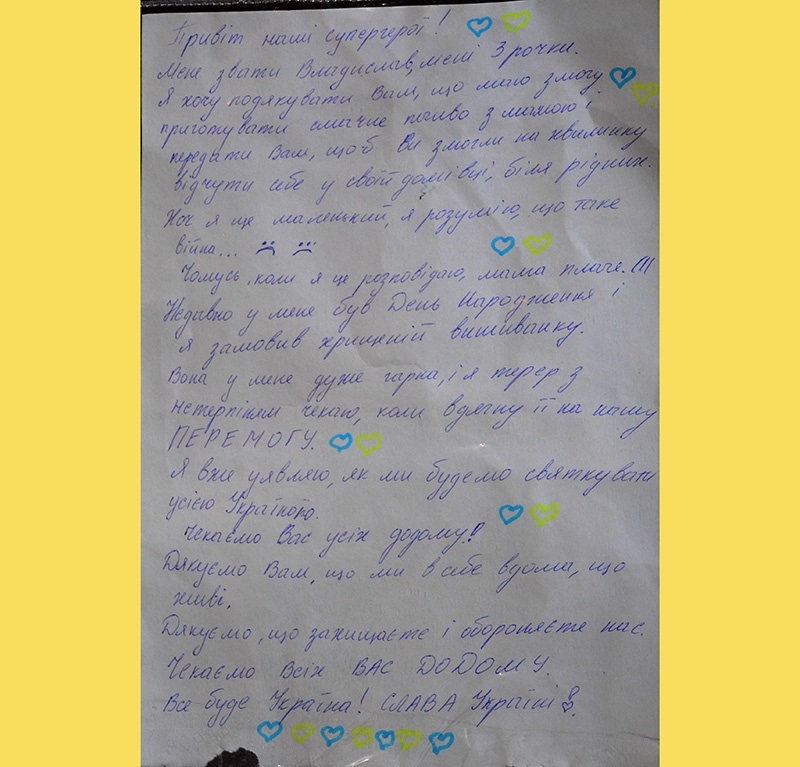 Привіт наші супергерої!
Мене звати Владислав, мені 3 рочки.
Я хочу подякувати Вам, що маю змогу
приготувати смачне печиво з мамою і
передати Вам, щоб Ви змогли на хвилинку
відчути себе у своїй домівці, біля рідних.
Хоч я ще маленький, я розумію, що таке
війна...
Чомусь, коли я це розповідаю, мама плаче. (((
Недавно у мене був День Народження і
я замовив хрищеній вишиванку.
Вона у мене дуже гарна, і я тепер з
нетерпінням чекаю, коли вдягну її на нашу
ПЕРЕМОГУ.
Я вже уявляю, як ми будемо святкувати
усією Україною.
Чекаємо Вас усіх додому!
Дякуємо Вам, що ми в себе вдома, що
живі.
Дякуємо, що захищаєте і обороняєте нас.
Чекаємо Всіх ВАС ДОДОМУ.
Все буде Україна! СЛАВА Україні!